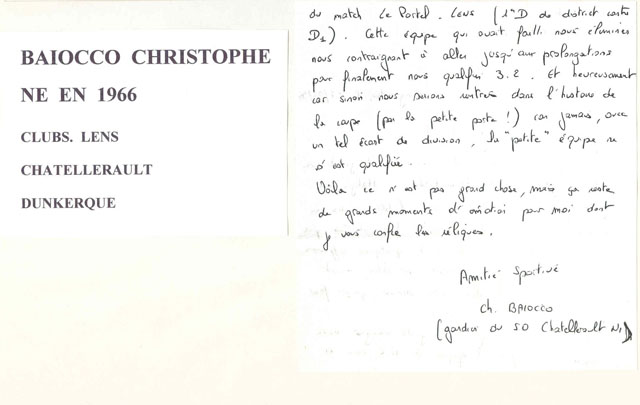 BAIOCCO CHRISTOPHE
NE EN 1966
CLUBS. LENS
CHATELLERAULT
DUNKERQUE
du match Le Portel - Lens (1ère D de district contre
D1). Cette équipe qui avait failli nous éliminer
nous contraignant à aller jusqu'aux prolongations
pour finalement nous qualifier 3.2. Et heureusement
car sinon nous serions rentrés dans l'histoire de
la coupe (par la petite porte !) car jamais, avec
un tel écart de division, la "petite" équipe ne
s'est qualifiée.
Voilà ce n'est pas grand chose, mais ça reste
de grands moments d'émotion pour moi dont
je vous confie les reliques.
Amitié Sportive
Ch. BAIOCCO
(gardien du SO Chatellerault N1)